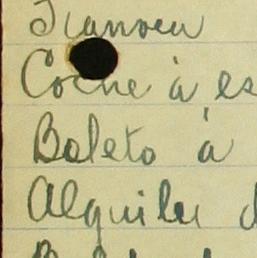 Tranvia
Coche à es
Boleto à
Alquiler d